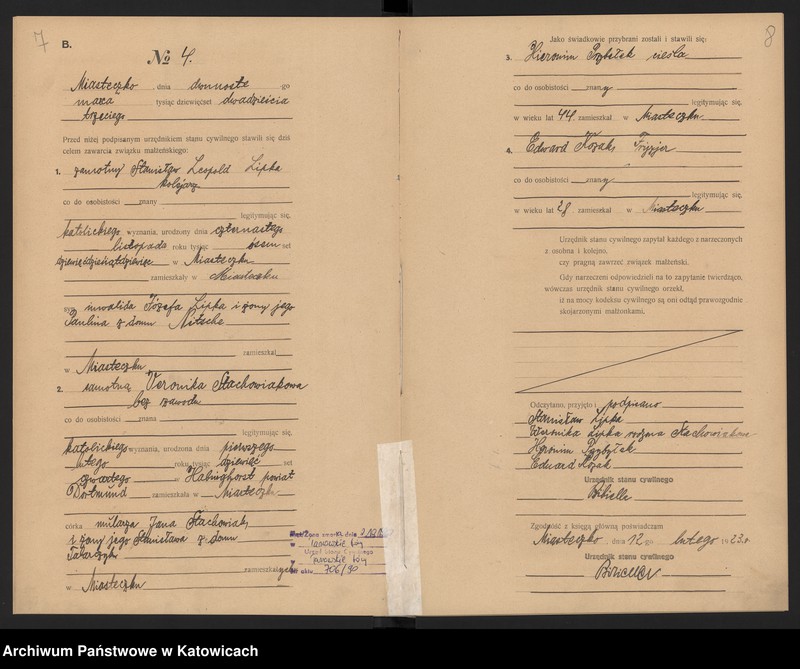 7
B.
№ 4.
Miasteczko dnia -go
tysiąc dziewięćset dwadzieścia
trzeciego
Przed niżej podpisanym urzędnikiem stanu cywilnego stawili się dziś
celem zawarcia związku małżeńskiego:
1. samotny Stanisław Leopold Lipka
kolejarz
co do osobistości znany
legitymując się,
katolickiego wyznania, urodzony dnia czternastego
listopada roku tysiąc ósm set
dziewięćdziesiątdziewięć w Miasteczku
zamieszkały w Miasteczku
syn inwalida Józefa Lipka i żony jego
Paulina z domu Nitsche
zamieszkał
w Miasteczku
2. samotna Veronika Stachowiakowa
bez zawodu
co do osobistości znana
legitymując się,
katolickiego wyznania, urodzona dnia pierwszego
lutego roku tysiąc dziewięć set
czwartego w Habinghorst powiat
Dortmund zamieszkała w Miasteczku
córka mularza Jana Stachowiak
i żony jego Stanisława z domu
zamieszkałych
w Miasteczku
dnia
w
Urząd Stanu Cywilnego
Nr aktu 706/90
8
Jako świadkowie przybrani zostali i stawili się:
3. Hieronim Przybyłek cieśla
co do osobistości znany
legitymując się,
w wieku lat 44 zamieszkał w Miasteczku
4. Edward Kozak Fryzjer
co do osobistości znany
legitymując się,
w wieku lat 28 zamieszkał w Miasteczku
Urzędnik stanu cywilnego zapytał każdego z narzeczonych
z osobna i kolejno,
czy pragną zawrzeć związek małżeński.
Gdy narzeczeni odpowiedzieli na to zapytanie twierdząco,
wówczas urzędnik stanu cywilnego orzekł,
iż na mocy kodeksu cywilnego są oni odtąd prawozgodnie
skojarzonymi małżonkami.
Odczytano, przyjęto i podpisano
Stanisław Lipka
Weronika Lipka rodzona Stachowiakowa
Hieronim Przybyłek
Eduard Kozak
Urzędnik stanu cywilnego
Zgodność z księgą główną poświadczam
Miasteczko, dnia 12-go lutego 1923.
Urzędnik stanu cywilnego
Archiwum Państwowe w Katowicach